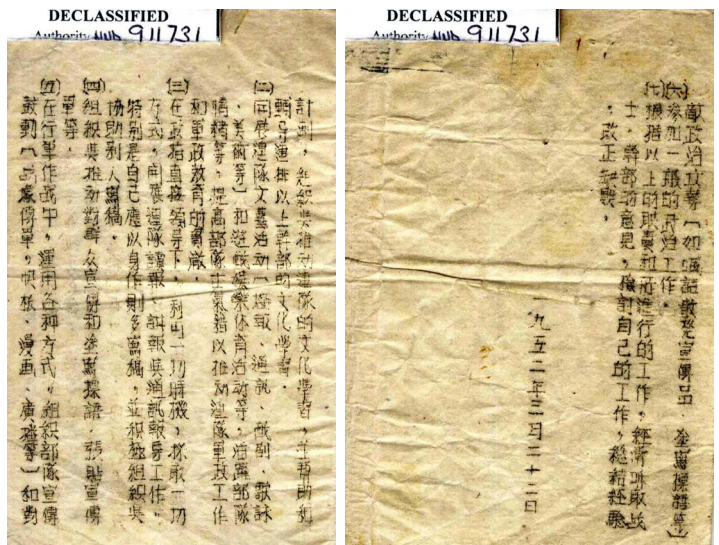 DECLASSIFIED
Authority NND 911731
計劃，組織與推动連隊的文化學習，並帮助和
輔导連排以上幹部的文化學習.
(二)開展連隊文藝活动(墙報、通訊、戯剧、歌詠
、美術等)和遊戲娛樂体育活动等，活躍部隊
情緒等，提高部隊士氣藉以推动連隊軍政工作
和軍政教育的貫徹.
(三)在政指直接領导下，利用一切時機，採取一切
方式，開展連隊讀報、訓報與通訊報导工作，
特别是自己應以身作則多寫稿，並积极組織與
協助别人寫稿.
(四)組織與推动對群众宣傳和塗寫標語、張貼宣傳
單等.
(五)在行軍作战中，運用各种方式，組織部隊宣傳
鼓動(战壕傳單、快板、漫画、廣播等)和對
DECLASSIFIED
Authority NND 911731
敵政治攻勢(如喊話散發宣傳品、塗寫標語等)
(六)参加一般的政治工作.
(七)根据以上的职責和所進行的工作，經常听取战
士、幹部的意見，檢討自己的工作，總結經驗
，改正缺點.
一九五二年三月二十二日